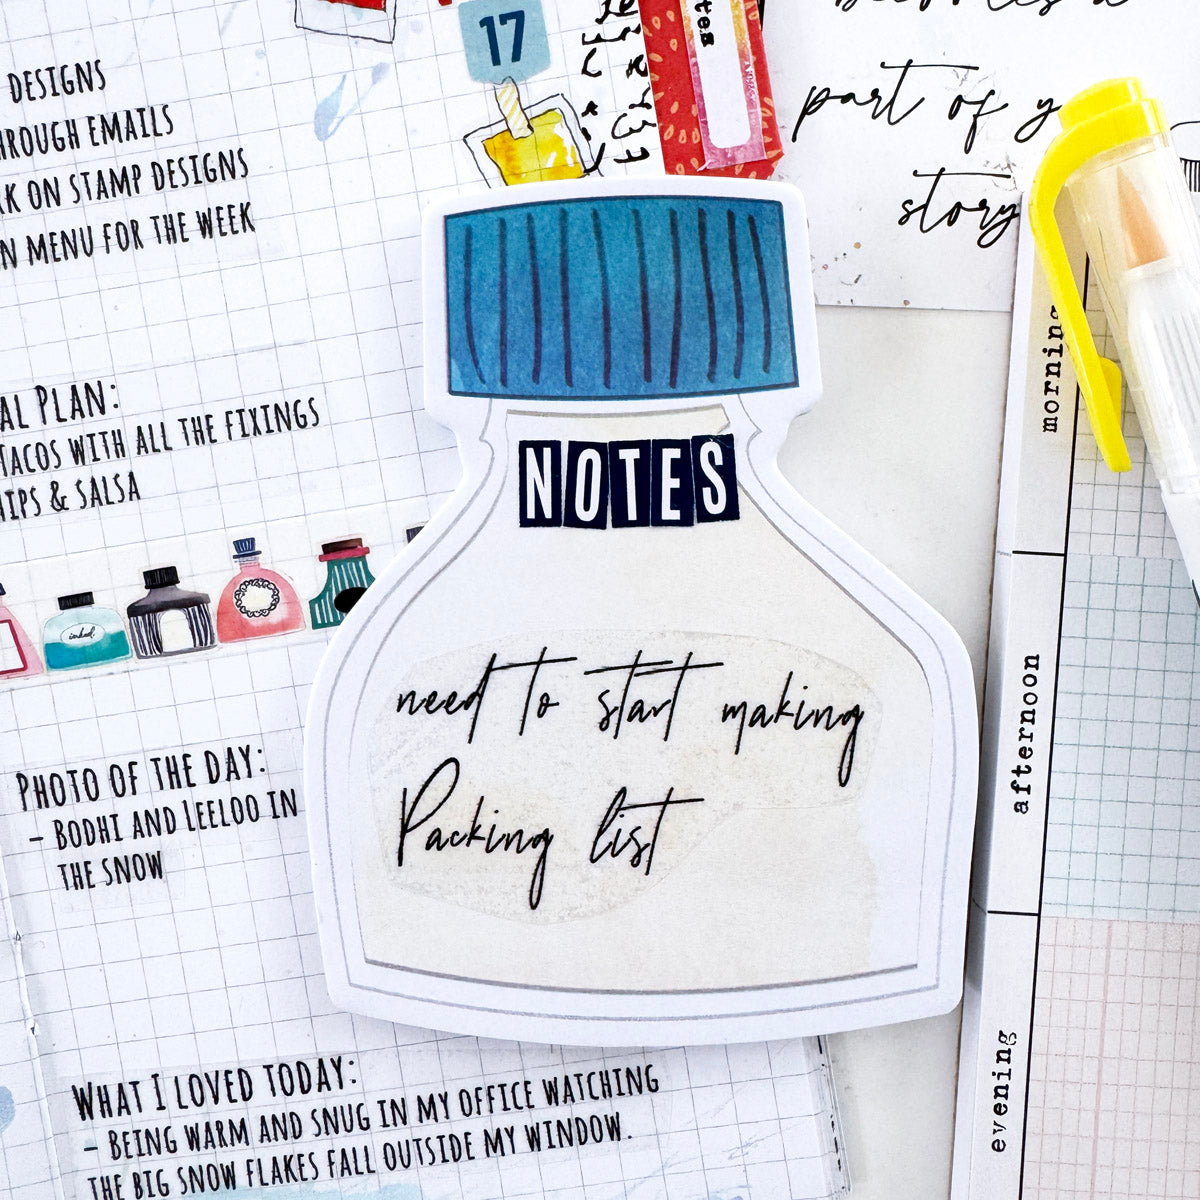 DESIGNS
THROUGH EMAILS
ON STAMP DESIGNS
MENU FOR THE WEEK
17
part of
story
PLAN:
TACOS WITH ALL THE FIXINGS
& SALSA
inked.
PHOTO OF THE DAY:
- BODHI AND LEELOO IN
THE SNOW
WHAT I LOVED TODAY:
- BEING WARM AND SNUG IN MY OFFICE WATCHING
THE BIG SNOW FLAKES FALL OUTSIDE MY WINDOW.
NOTES
need to start making
Packing list
morning
afternoon
evening